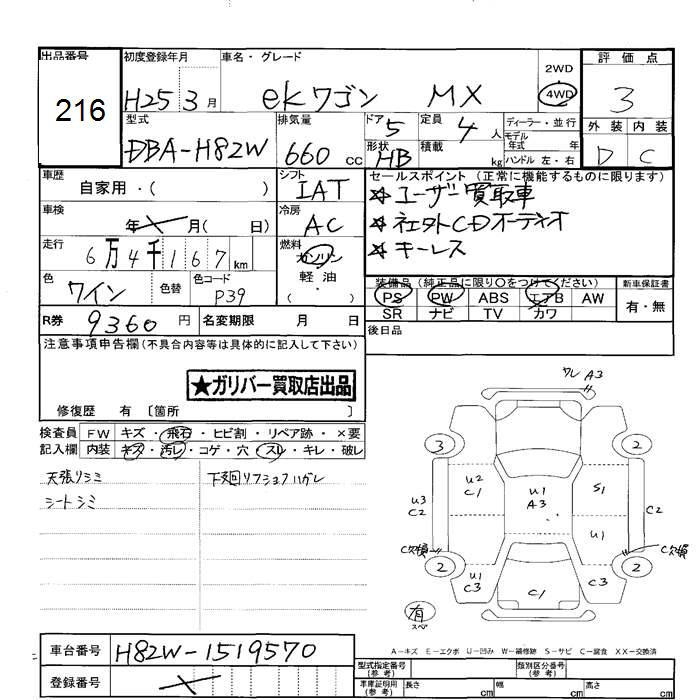 出品番号
216
初度登録年月
H25 3月
車名・グレード
ekワゴン MX
2WD
4WD
評価点
3
外装 内装
D C
型式
DBA-H82W
排気量
660 cc
ドア 5
形状 HB
定員 4人
積載 kg
ディーラー・並行
モデル年式 年
ハンドル 左・右
車歴
自家用・( )
車検
年 月( 日)
走行
6万4千167 km
色
ワイン
色替
色コード
P39
シフト
IAT
冷房
AC
燃料
ガソリン
軽油
( )
セールスポイント (正常に機能するものに限ります)
☆ユーザー買取車
☆社外CDオーディオ
☆キーレス
装備品(純正品に限り○をつけてください)
PS PW ABS エアB AW
SR ナビ TV カワ
新車保証書
有・無
R券 9360円
名変期限 月 日
後日品
注意事項申告欄(不具合内容等は具体的に記入して下さい)
★ガリバー買取店出品
修復歴 有 〔箇所 〕
検査員 FW キズ・飛石・ヒビ割・リペア跡・×要
記入欄 内装 キズ・汚レ・コゲ・穴・スレ・キレ・破レ
天張りシミ
シートシミ
下廻り
ハガレ
A3
3 2
U2
C1
U1
A3
S1
U3
C2
C2
U1
C欠損
C欠損
2 2
U1
C3
C1
C3
有
スペア
A−キズ E−エクボ U−凹み W−補修跡 S−サビ C−腐食 XX−交換済
車台番号
H82W-1519570
登録番号
型式指定番号(参考)
類別区分番号(参考)
車庫証明用(参考)
長さ cm
幅 cm
高さ cm